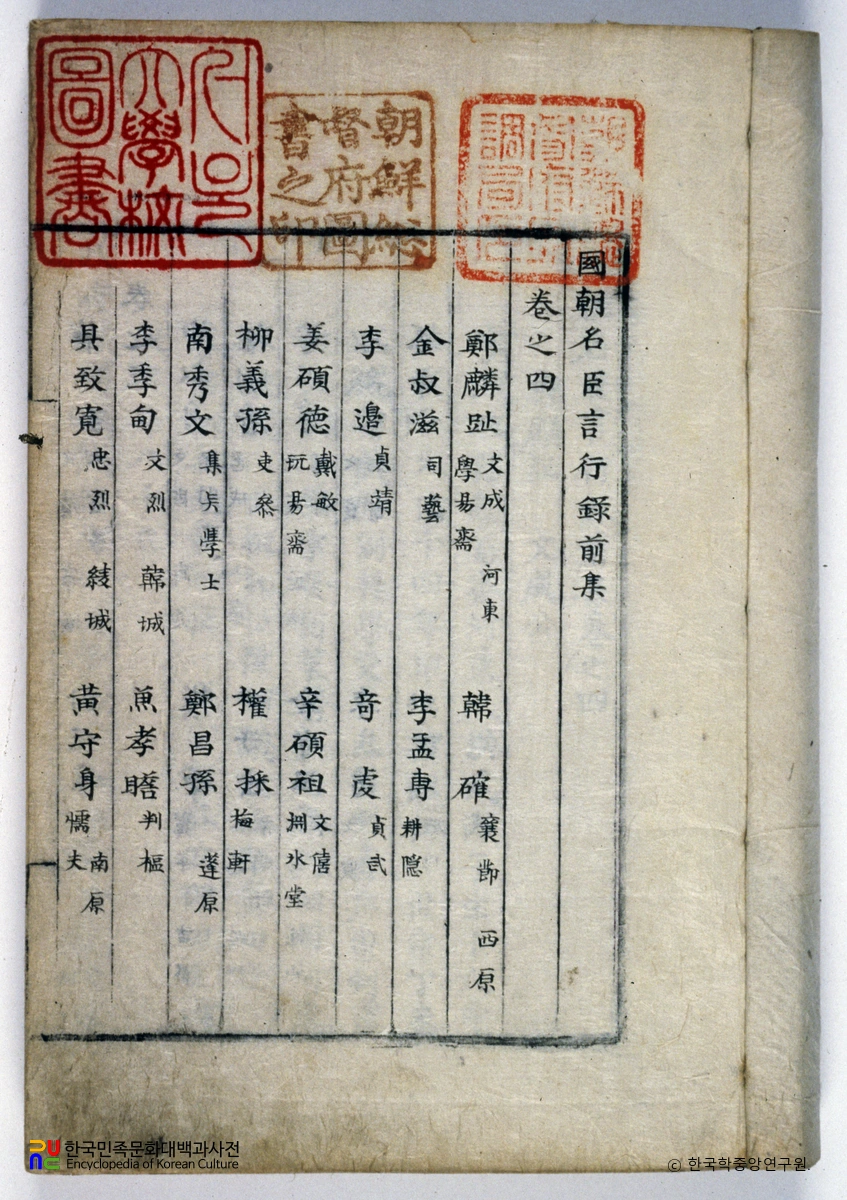 國朝名臣言行錄前集
卷之四
鄭麟趾 文成 學易齋 河東 韓確 襄節 西原
金叔滋 司藝 李孟專 耕隠
李邉 貞靖 奇虔 貞武
姜碩德 戴敏 玩易齋 辛碩祖 文僖 淵氷堂
柳義孫 吏叅 權採 梅軒
南秀文 集賢學士 鄭昌孫 蓬原
李季甸 文烈 韓城 魚孝瞻 判樞
具致寬 忠烈 綾城 黃守身 懦夫 南原
朝鮮總
督府圖
書之印
大學校
圖書
한국민족문화대백과사전
Encyclopedia of Korean Culture
© 한국학중앙연구원